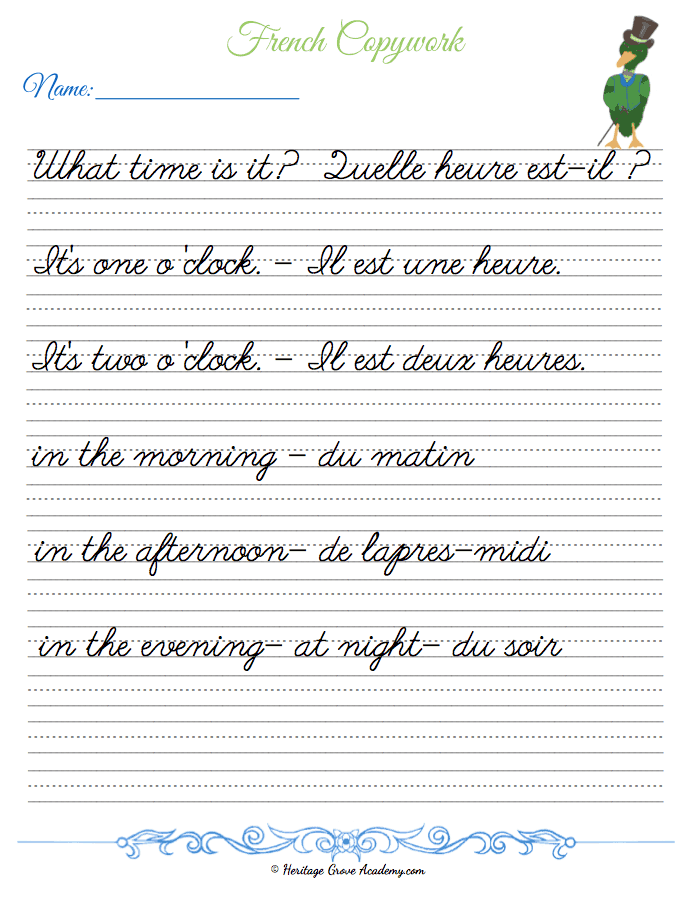 French Copywork
Name:
What time is it? Quelle heure est-il ?
It's one o'clock. - Il est une heure.
It's two o'clock. - Il est deux heures.
in the morning - du matin
in the afternoon- de lapres-midi
in the evening- at night- du soir
© Heritage Grove Academy.com